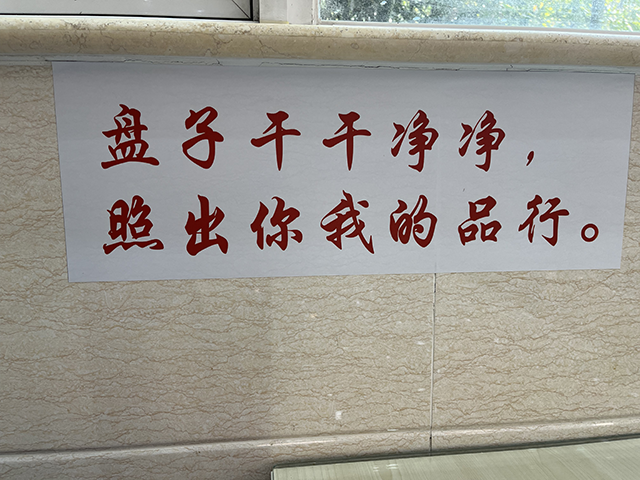 盘子干干净净，
照出你我的品行。